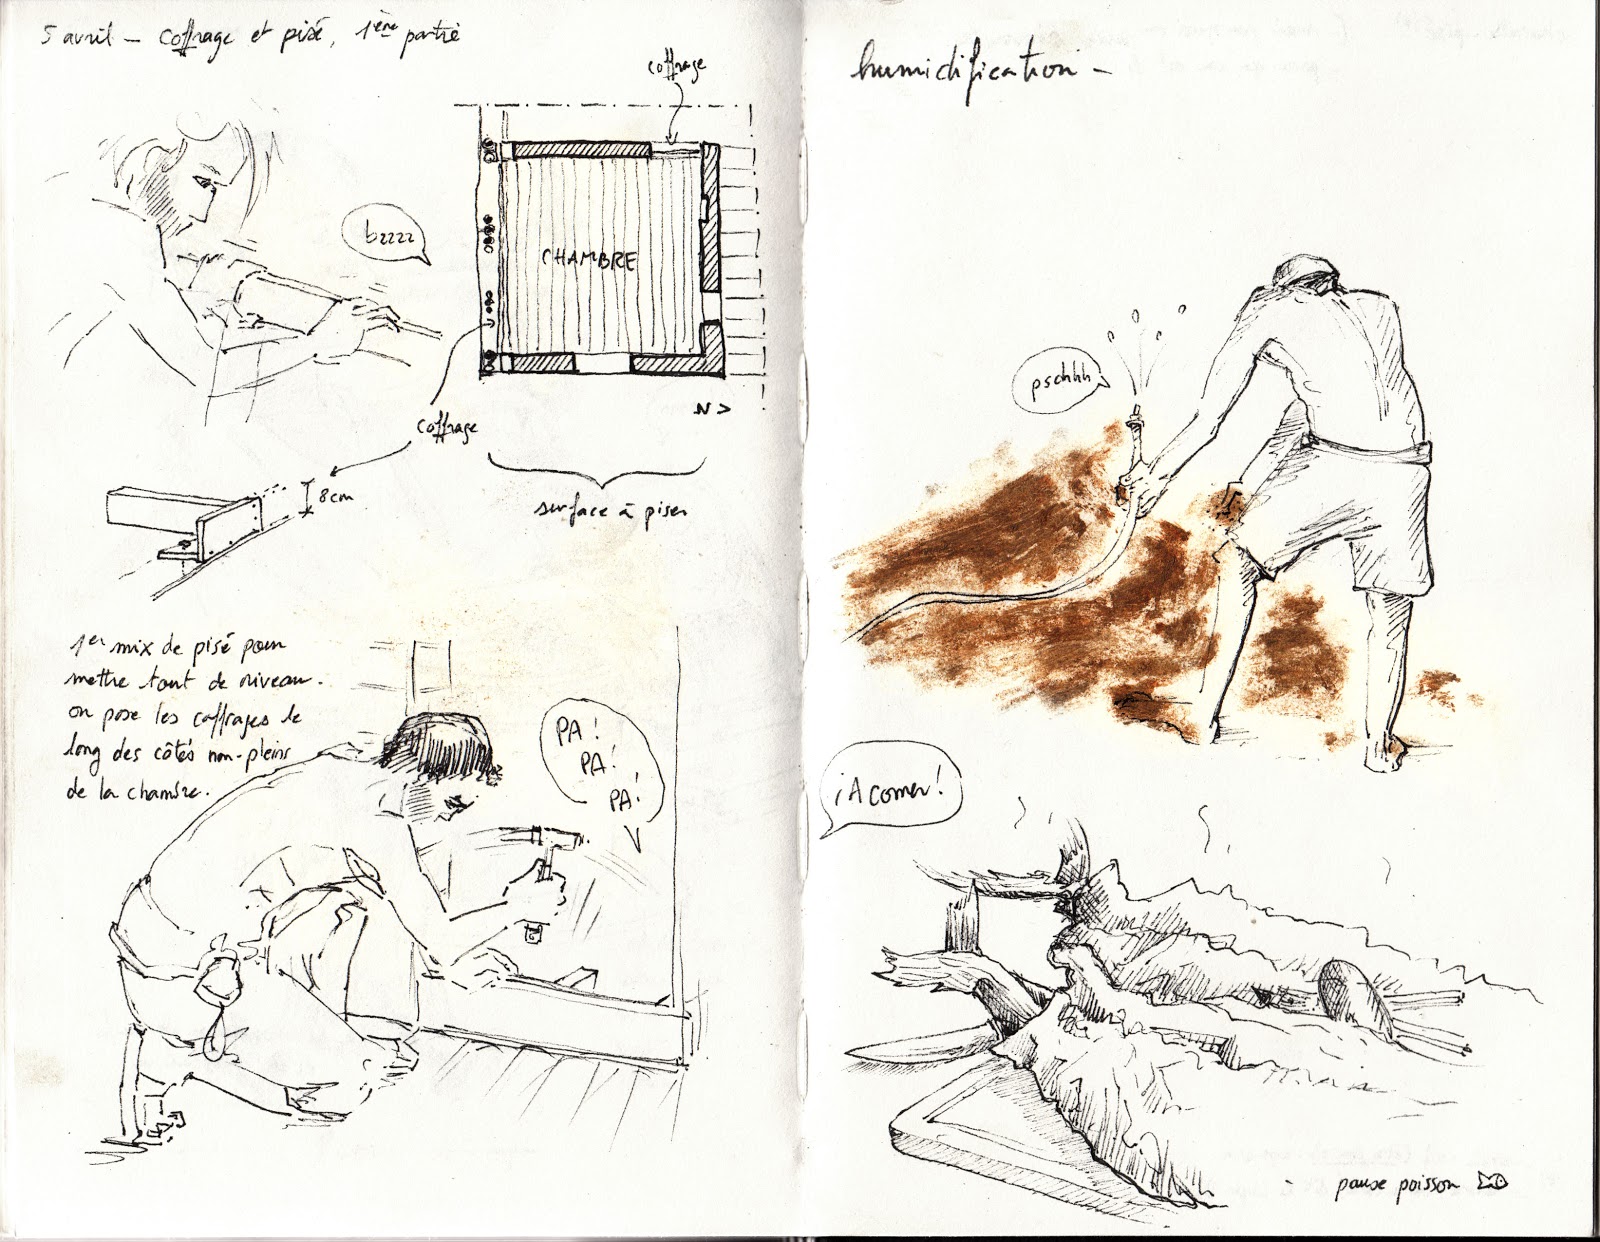 5 avril - coffrage et pisé, 1ère partie
coffrage
bzzzz
CHAMBRE
N >
coffrage
8cm
surface à piser
1er mix de pisé pour
mettre tout de niveau.
on pose les coffrages le
long des côtés non-pleins
de la chambre.
PA!
PA!
PA!
humidification -
pschhh
¡A comer!
pause poisson